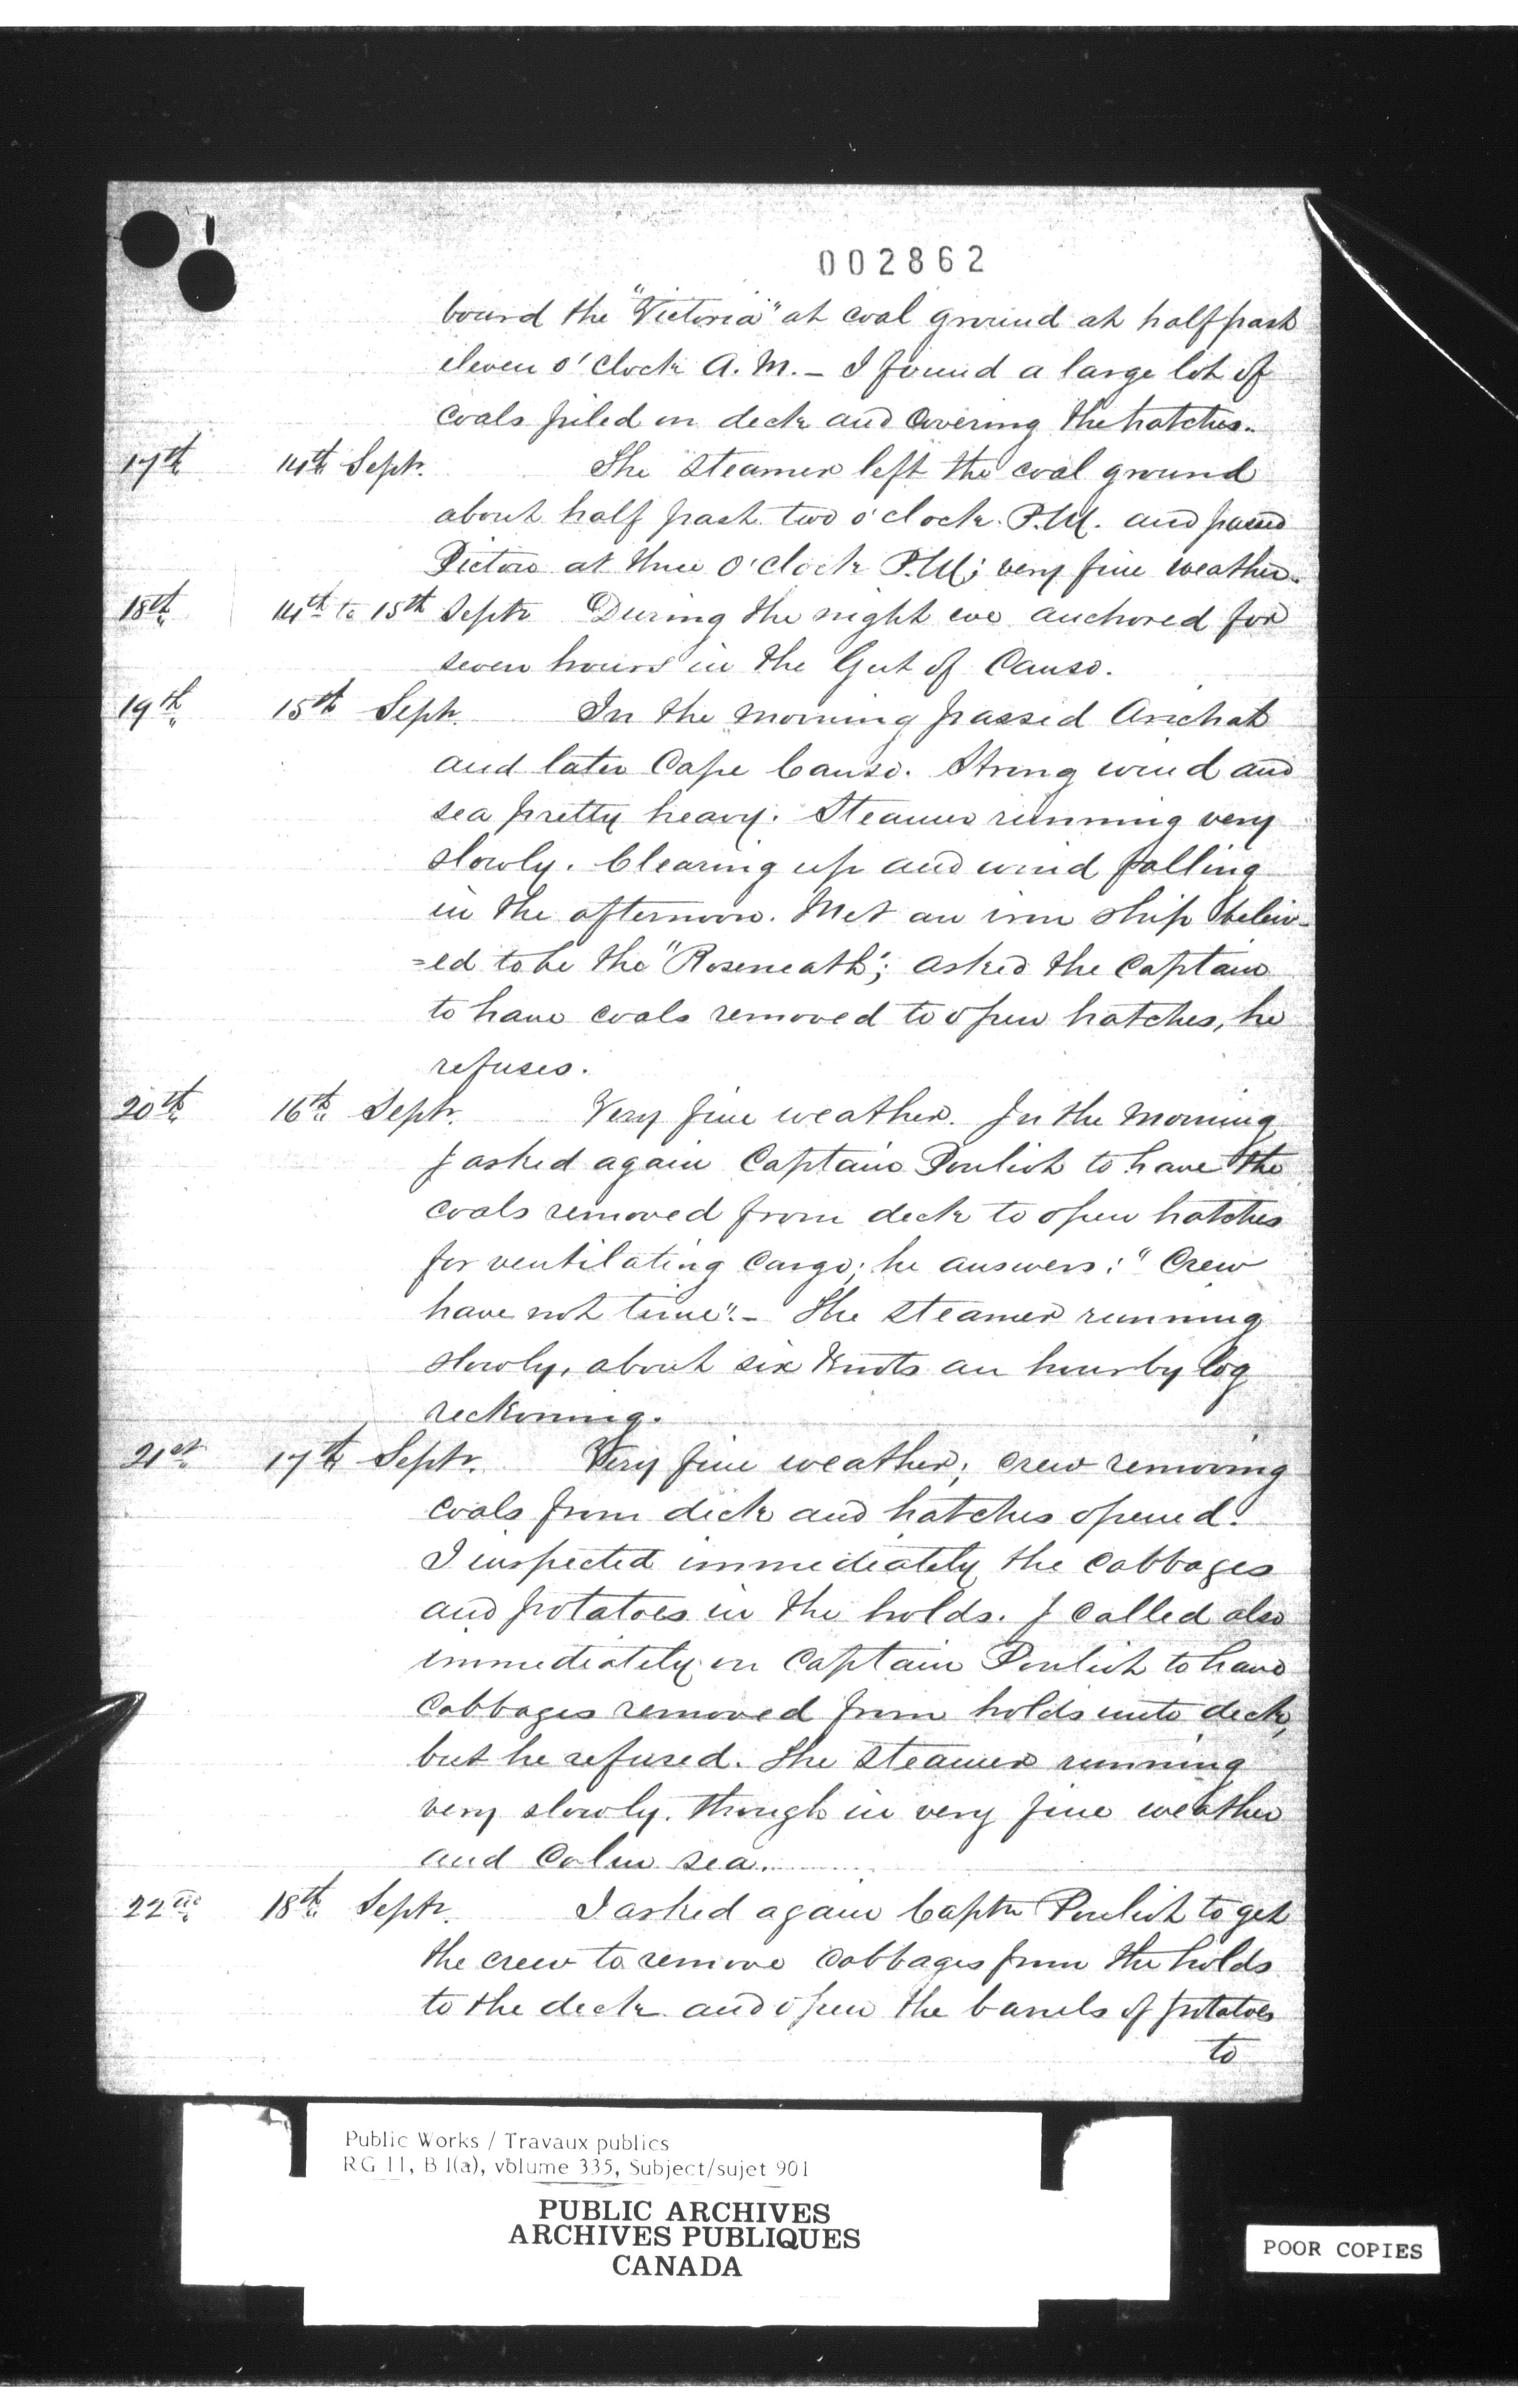 002862
bound the "Victoria" at coal ground at half past
eleven o'clock A.M. - I found a large lot of
coals piled on deck and covering the hatches.
17th 14th Sept. The steamer left the coal ground
about half past two o'clock P.M. and passed
Pictou at three o'clock P.M; very fine weather.
18th 14th to 15th Sept. During the night we anchored for
seven hours in the Gut of Canso.
19th 15th Sept. In the morning passed Arichat
and later Cape Canso. Strong wind and
sea pretty heavy. Steamer running very
slowly. Clearing up and wind falling
in the afternoon. Met an iron ship believ-
=ed to be the "Roseneath"; asked the Captain
to have coals removed to open hatches, he
refuses.
20th 16th Sept. Very fine weather. In the morning
I asked again Captain Pouliot to have the
coals removed from deck to open hatches
for ventilating cargo; he answers: "Crew
have not time". - The steamer running
slowly, about six knots an hour by log
reckoning.
21st 17th Sept. Very fine weather; crew removing
coals from deck and hatches opened.
I inspected immediately the cabbages
and potatoes in the holds. I called also
immediately on Captain Pouliot to have
cabbages removed from holds unto deck,
but he refused. The steamer running
very slowly, though in very fine weather
and calm sea.
22nd 18th Sept. I asked again Captn Pouliot to get
the crew to remove cabbages from the holds
to the deck and open the barrels of potatoes
to
Public Works / Travaux publics
RG 11, B 1(a), volume 335, Subject/sujet 901
PUBLIC ARCHIVES
ARCHIVES PUBLIQUES
CANADA
POOR COPIES